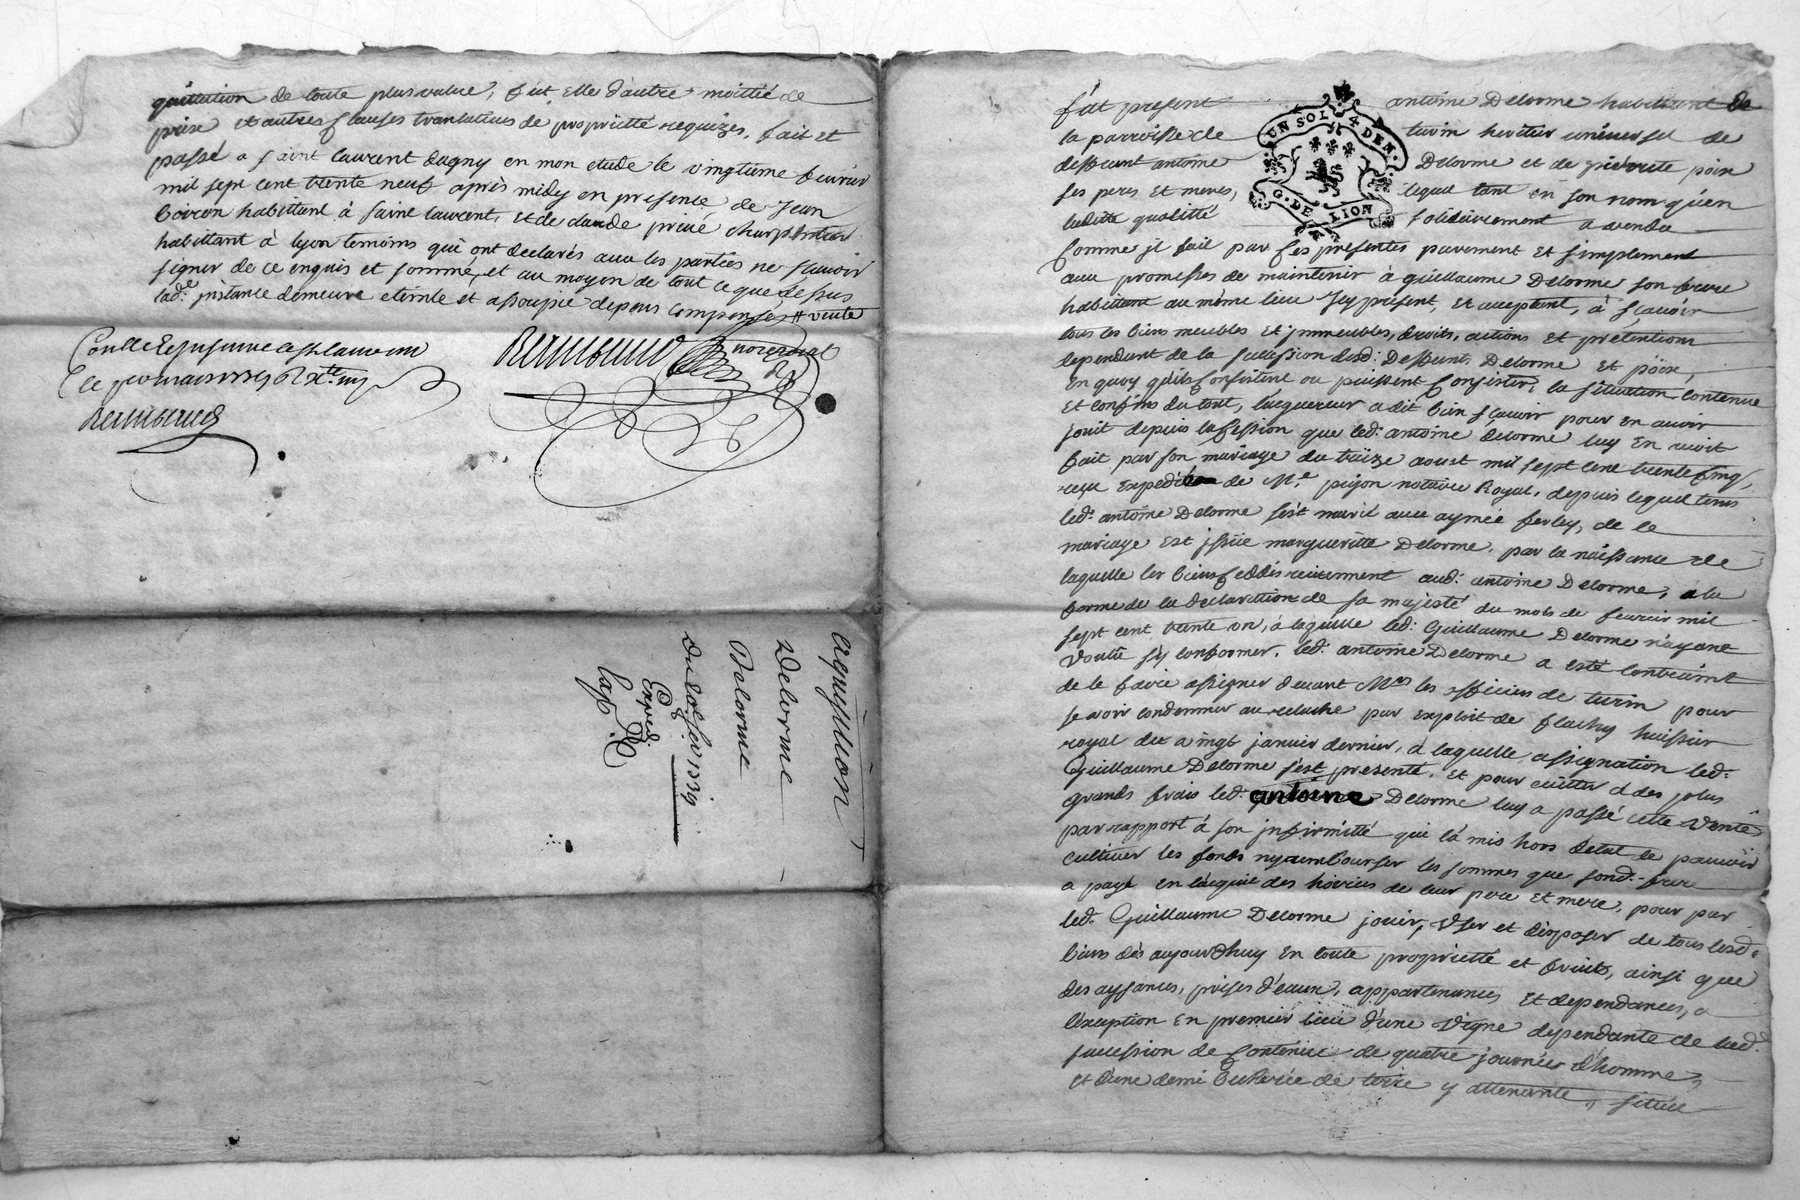 quittation de toute plus value, fut elle d'autre moittié de
prise et autres clauses translatives de proprietté requizes. fait et
passé a saint laurent dagny en mon etude le vingtieme fevrier
mil sept cent trente neuf après midy en presence de Jean
boiron habittant à saint laurent, et de claude privé charpentier
habittant à lyon temoins qui ont declarés avec les parties ne sçavoir
signer de ce enquis et sommé, et au moyen de tout ce que dessus
lade. jnstance demeure eteinte et assoupie depens compensés
no.re royal
acquisition
Delorme
Delorme
Exped.
UN SOL 4 DEN.
G. DE LION
fut present antoine Delorme habittant de
la parroisse de turin heritier universel de
deffunt antoine Delorme et de pierrette poin
ses peres et meres, lequel tant en son nom qu'en
ladite qualitté solidairement a vendu
comme jl fait par ces presentes purement et simplement
avec promesses de maintenir à guillaume Delorme son frere
habittant au même lieu jcy present, et acceptant, à sçavoir
tous les biens meubles et jmmeubles, droits, actions et prétentions
dependant de la succession desd: deffunt Delorme et poin,
en quoy qu'ils consistent ou puissent consister, la situation contenue
et confins du tout, lacquereur a dit bien sçavoir pour en avoir
jouit depuis la cession que led: antoine delorme luy en avoit
fait par son mariage du treize aoust mil sept cent trente cinq,
reçu expedié de M.e pujon notaire Royal, depuis lequel tems
led: antoine Delorme s'est marié avec aymée ferley, de ce
mariage est jssüe margueritte Delorme, par la naissance de
laquelle les biens ceddés reviennent aud: antoine Delorme, a la
forme de la declaration de sa majesté du mois de fevrier mil
sept cent trente un, à laquelle led: Guillaume Delorme n'ayant
voulu s'y conformer, led: antoine Delorme a esté contraint
de le faire assigner devant M.rs les officiers de turin pour
se voir condamner au relache par exploit de flachy huissier
royal du vingt janvier dernier, à laquelle assignation led:
Guillaume Delorme s'est presenté, et pour eviter a des plus
grands frais led. antoine Delorme luy a passé cette vente
par rapport à son jnfirmitté qui l'a mis hors d'etat de pouvoir
cultiver les fonds ny rembourser les sommes que sond: frere
a payé en l'acquit des hoiries de leur pere et mere, pour par
led: Guillaume Delorme jouir, user et disposer de tous lesd.
biens dès aujourdhuy en toute proprietté et fruits, ainsi que
des aysances, prises d'eaux, appartenances et dependances, a
l'exception en premier lieu d'une vigne dependante de lad.
succession de contenue de quatre journées d'homme,
et d'une demi bicherée de terre y attenante, situés